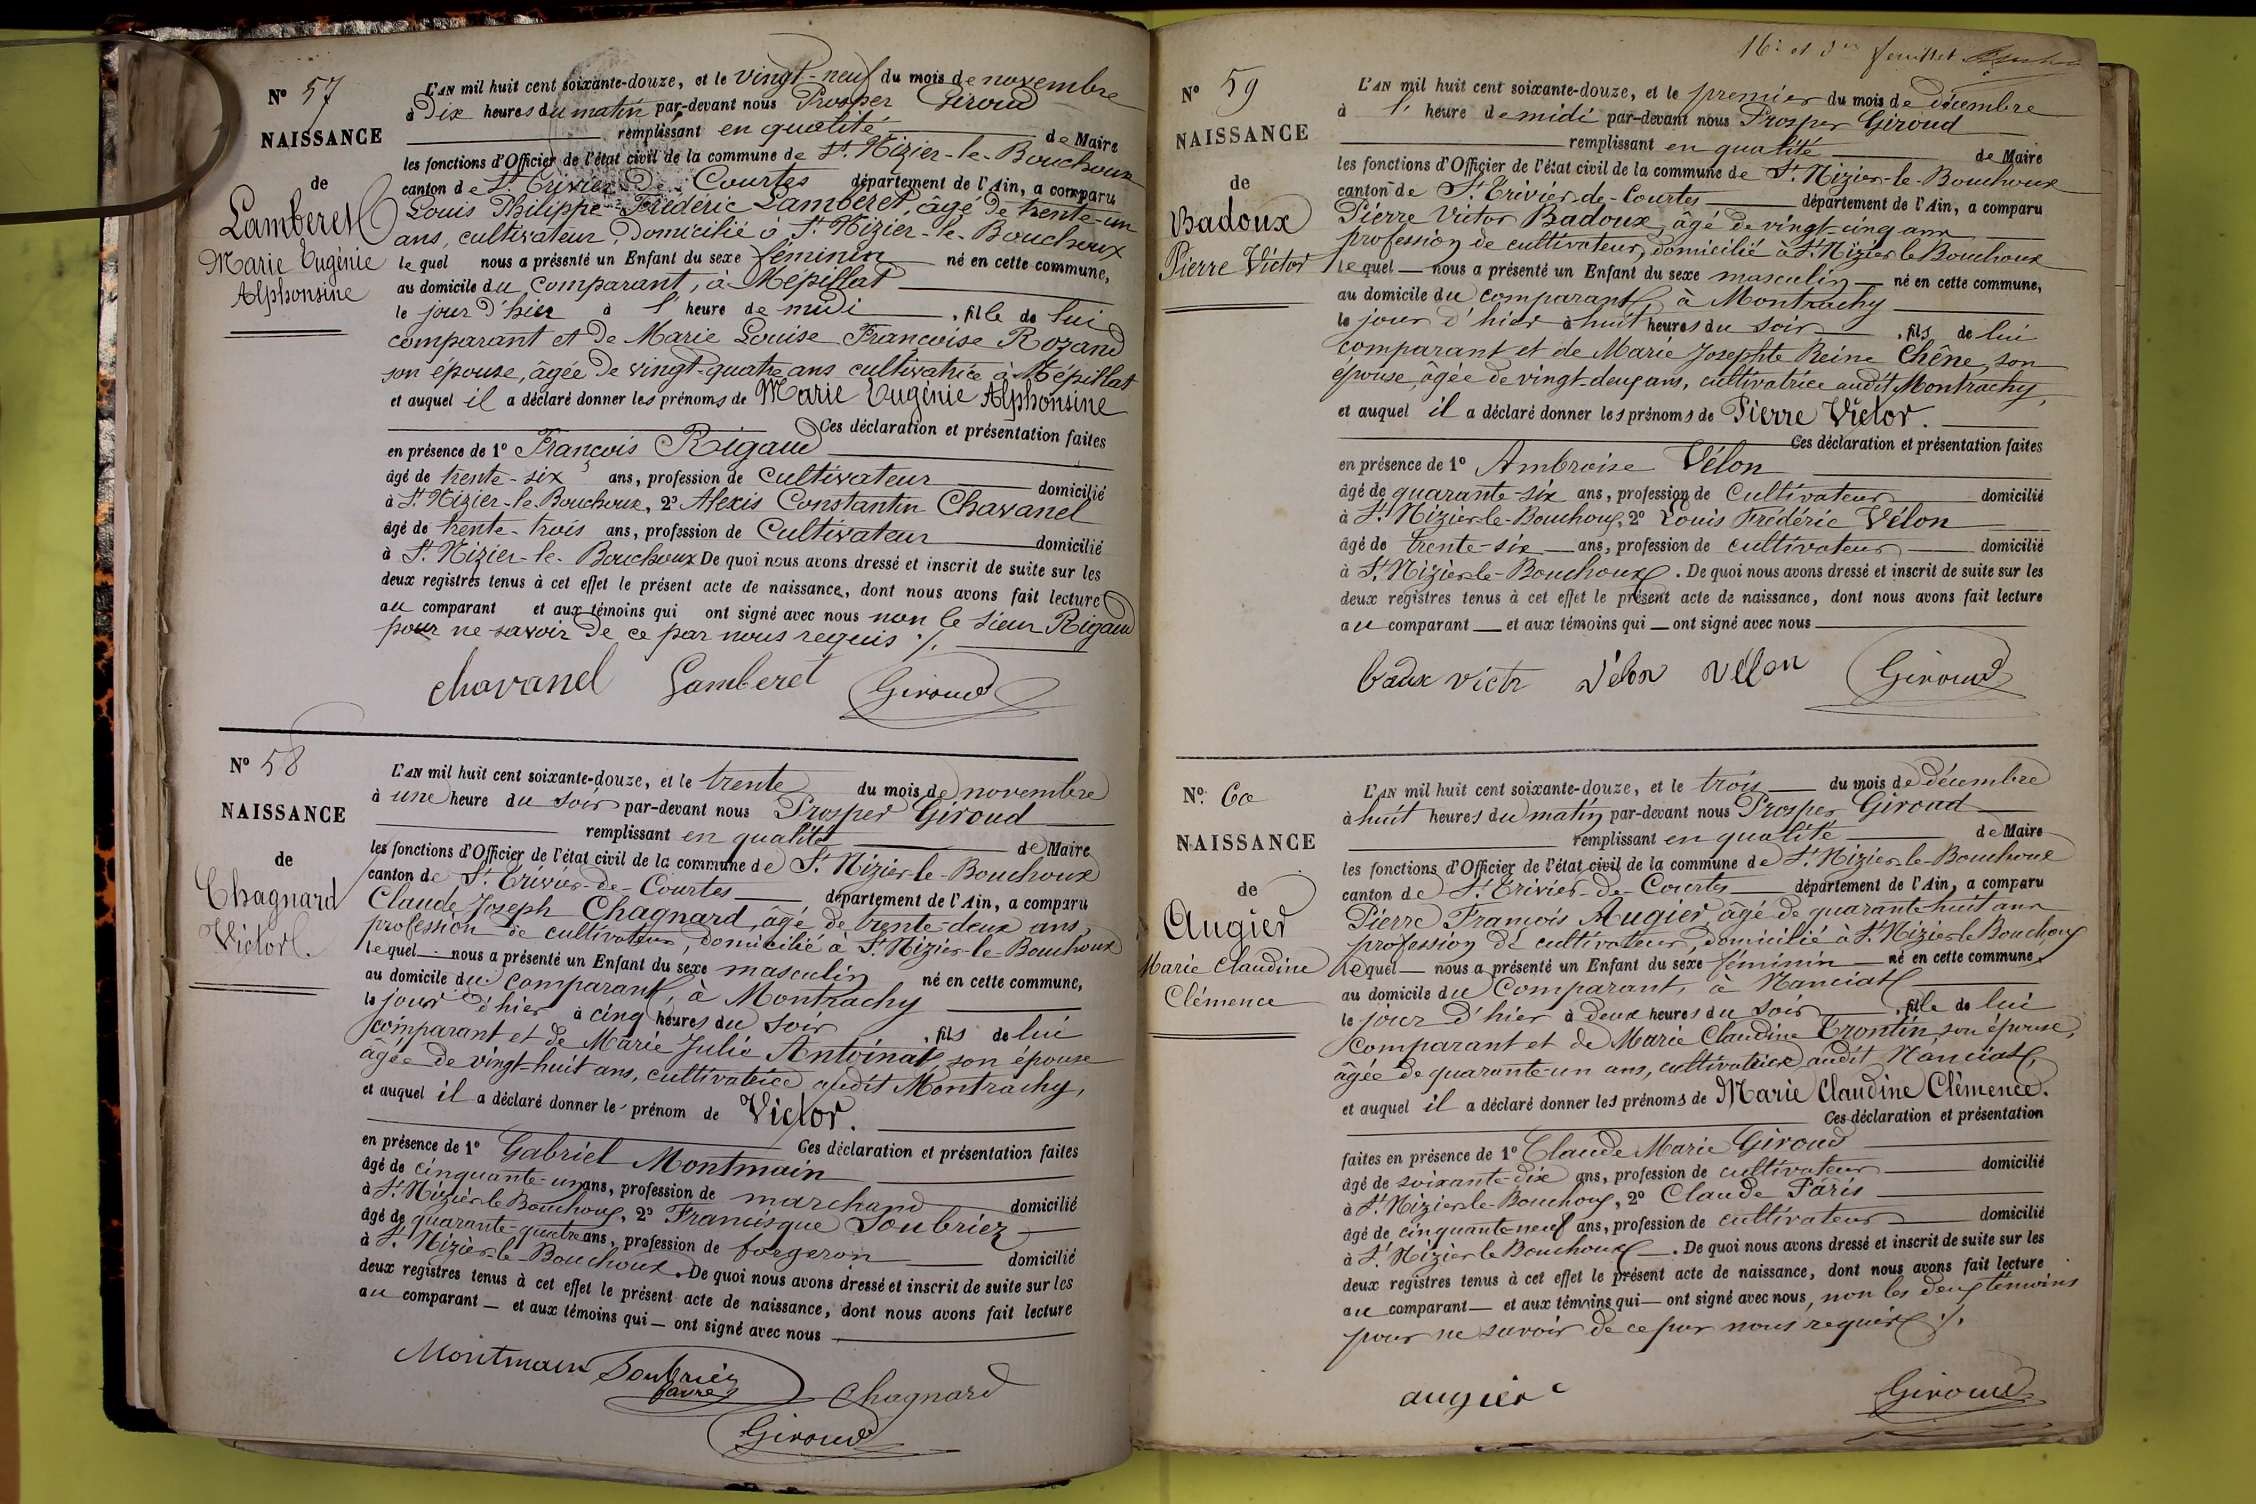 N° 57
NAISSANCE
de
Lamberet
Marie Eugénie
Alphonsine
L'AN mil huit cent soixante-douze, et le vingt-neuf du mois de novembre
à Dix heures du matin par-devant nous Prosper Giroud
remplissant en qualité de Maire
les fonctions d'Officier de l'état civil de la commune de St. Nizier-le-Bouchoux
canton de St. Trivier-De-Courtes département de l'Ain, a comparu
Louis Philippe Frédéric Lamberet, âgé de trente-un
ans, cultivateur, domicilié à St. Nizier-le-Bouchoux
lequel nous a présenté un Enfant du sexe féminin né en cette commune,
au domicile du comparant, à Mépillat
le jour d'hier à l' heure de midi , fille de lui
comparant et de Marie Louise Françoise Rozand
son épouse, âgée de vingt-quatre ans cultivatrice à Mépillat
et auquel il a déclaré donner les prénoms de Marie Eugénie Alphonsine
Ces déclaration et présentation faites
en présence de 1° François Rigaud
âgé de trente-six ans, profession de cultivateur domicilié
à St. Nizier-le-Bouchoux, 2° Alexis Constantin Chavanel
âgé de trente-trois ans, profession de Cultivateur domicilié
à St. Nizier-le-Bouchoux De quoi nous avons dressé et inscrit de suite sur les
deux registres tenus à cet effet le présent acte de naissance, dont nous avons fait lecture
au comparant et aux témoins qui ont signé avec nous non le sieur Rigaud
pour ne savoir de ce par nous requis ./.
chavanel Lamberet Giroud
N° 58
NAISSANCE
de
Chagnard
Victor.
L'AN mil huit cent soixante-douze, et le trente du mois de novembre
à une heure du soir par-devant nous Prosper Giroud
remplissant en qualité de Maire
les fonctions d'Officier de l'état civil de la commune de St. Nizier-le-Bouchoux
canton de St. Trivier-de-Courtes département de l'Ain, a comparu
Claude Joseph Chagnard, âgé de trente-deux ans,
profession de cultivateur, domicilié à St. Nizier-le-Bouchoux
lequel nous a présenté un Enfant du sexe masculin né en cette commune,
au domicile du comparant, à Montrachy
le jour d'hier à cinq heures du soir , fils de lui
comparant et de Marie Julie Antoinat, son épouse
âgée de vingt-huit ans, cultivatrice audit Montrachy,
et auquel il a déclaré donner le prénom de Victor.
Ces déclaration et présentation faites
en présence de 1° Gabriel Montmain
âgé de cinquante-un ans, profession de marchand domicilié
à St. Nizier-le Bouchoux, 2° Francisque Soubriez
âgé de quarante-quatre ans, profession de forgeron domicilié
à St. Nizier-le-Bouchoux. De quoi nous avons dressé et inscrit de suite sur les
deux registres tenus à cet effet le présent acte de naissance, dont nous avons fait lecture
au comparant et aux témoins qui ont signé avec nous
Montmain Soubriez
favre
Chagnard
Giroud
16e et feuillet
N° 59
NAISSANCE
de
Badoux
Pierre Victor
L'AN mil huit cent soixante-douze, et le premier du mois de décembre
à l' heure de midi par-devant nous Prosper Giroud
remplissant en qualité de Maire
les fonctions d'Officier de l'état civil de la commune de St. Nizier-le-Bouchoux
canton de St. Trivier-de-Courtes département de l'Ain, a comparu
Pierre Victor Badoux, âgé de vingt-cinq ans
profession de cultivateur, domicilié à St. Nizier le Bouchoux
lequel nous a présenté un Enfant du sexe masculin né en cette commune,
au domicile du comparant, à Montrachy
le jour d'hier à huit heures du soir , fils de lui
comparant et de Marie Josephte Reine Chêne, son
épouse, âgée de vingt-deux ans, cultivatrice audit Montrachy,
et auquel il a déclaré donner les prénoms de Pierre Victor.
Ces déclaration et présentation faites
en présence de 1° Ambroise Vélon
âgé de quarante-six ans, profession de cultivateur domicilié
à St. Nizier-le-Bouchoux, 2° Louis Frédéric Vélon
âgé de trente-six ans, profession de cultivateur domicilié
à St. Nizier-le-Bouchoux. De quoi nous avons dressé et inscrit de suite sur les
deux registres tenus à cet effet le présent acte de naissance, dont nous avons fait lecture
au comparant et aux témoins qui ont signé avec nous
badux victr Vélon Vélon Giroud
N° 60
NAISSANCE
de
Augier
Marie Claudine
Clémence
L'AN mil huit cent soixante-douze, et le trois du mois de décembre
à huit heures du matin par-devant nous Prosper Giroud
remplissant en qualité de Maire
les fonctions d'Officier de l'état civil de la commune de St. Nizier-le-Bouchoux
canton de St. Trivier-de-Courtes département de l'Ain, a comparu
Pierre François Augier, âgé de quarante-huit ans
profession de cultivateur, domicilié à St. Nizier le Bouchoux
lequel nous a présenté un Enfant du sexe féminin né en cette commune,
au domicile du Comparant, à Nanciat
le jour d'hier à deux heures du soir , fille de lui
comparant et de Marie Claudine Trontin, son épouse,
âgée de quarante-un ans, cultivatrice audit Nanciat,
et auquel il a déclaré donner les prénoms de Marie Claudine Clémence.
Ces déclaration et présentation
faites en présence de 1° Claude Marie Giroud
âgé de soixante-dix ans, profession de cultivateur domicilié
à St. Nizier-le-Bouchoux, 2° Claude Pâris
âgé de cinquante-neuf ans, profession de cultivateur domicilié
à St. Nizier le Bouchoux. De quoi nous avons dressé et inscrit de suite sur les
deux registres tenus à cet effet le présent acte de naissance, dont nous avons fait lecture
au comparant et aux témoins qui ont signé avec nous, non les deux témoins
pour ne savoir de ce par nous requis ./.
augier Giroud